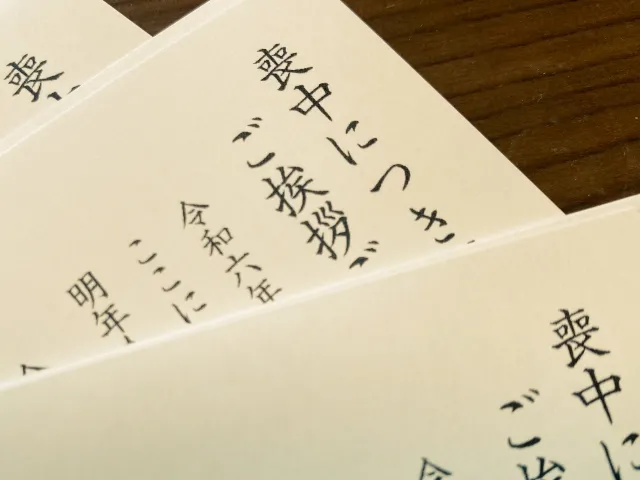 喪
喪中につき
ご挨拶
令和六年
ここに
明年
喪中に
ご挨